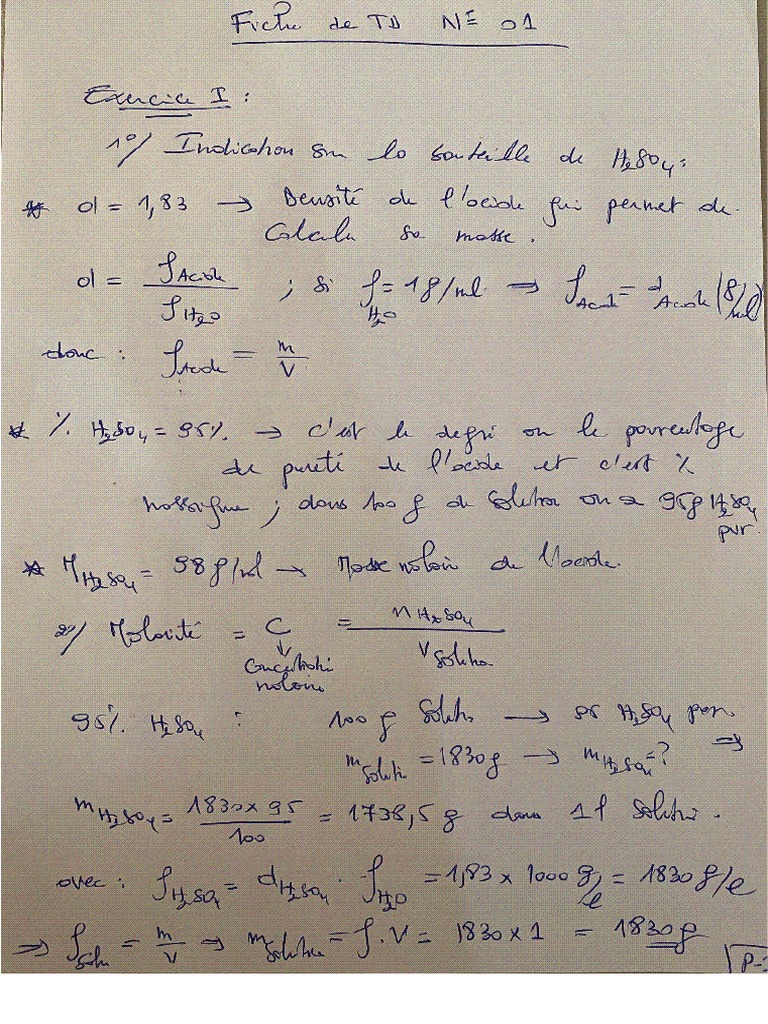 Fiche de TD N° 01
Exercice I :
1°/ Indication sur la bouteille de H2SO4 :
* d = 1,83 → Densité de l'acide qui permet de
Calculer sa masse.
d = ρAcide / ρH2O ; si ρH2O = 1g/ml → ρAcide = dAcide (g/ml)
donc : ρAcide = m/V
* % H2SO4 = 95% → c'est le degré ou le pourcentage
de pureté de l'acide et c'est %
massique ; dans 100 g de solution on a 95g H2SO4
pur.
* MH2SO4 = 98 g/mol → Masse molaire de l'acide.
2°/ Molarité = C = nH2SO4 / Vsolution
Concentration
molaire
95% H2SO4 : 100 g Solution → 95 H2SO4 pur.
msolution = 1830g → mH2SO4 = ? ⇒
mH2SO4 = 1830 x 95 / 100 = 1738,5 g dans 1l solution.
avec : ρH2SO4 = dH2SO4 . ρH2O = 1,83 x 1000 g/l = 1830 g/l
⇒ ρSolu = m/V → msolution = ρ.V = 1830 x 1 = 1830 g